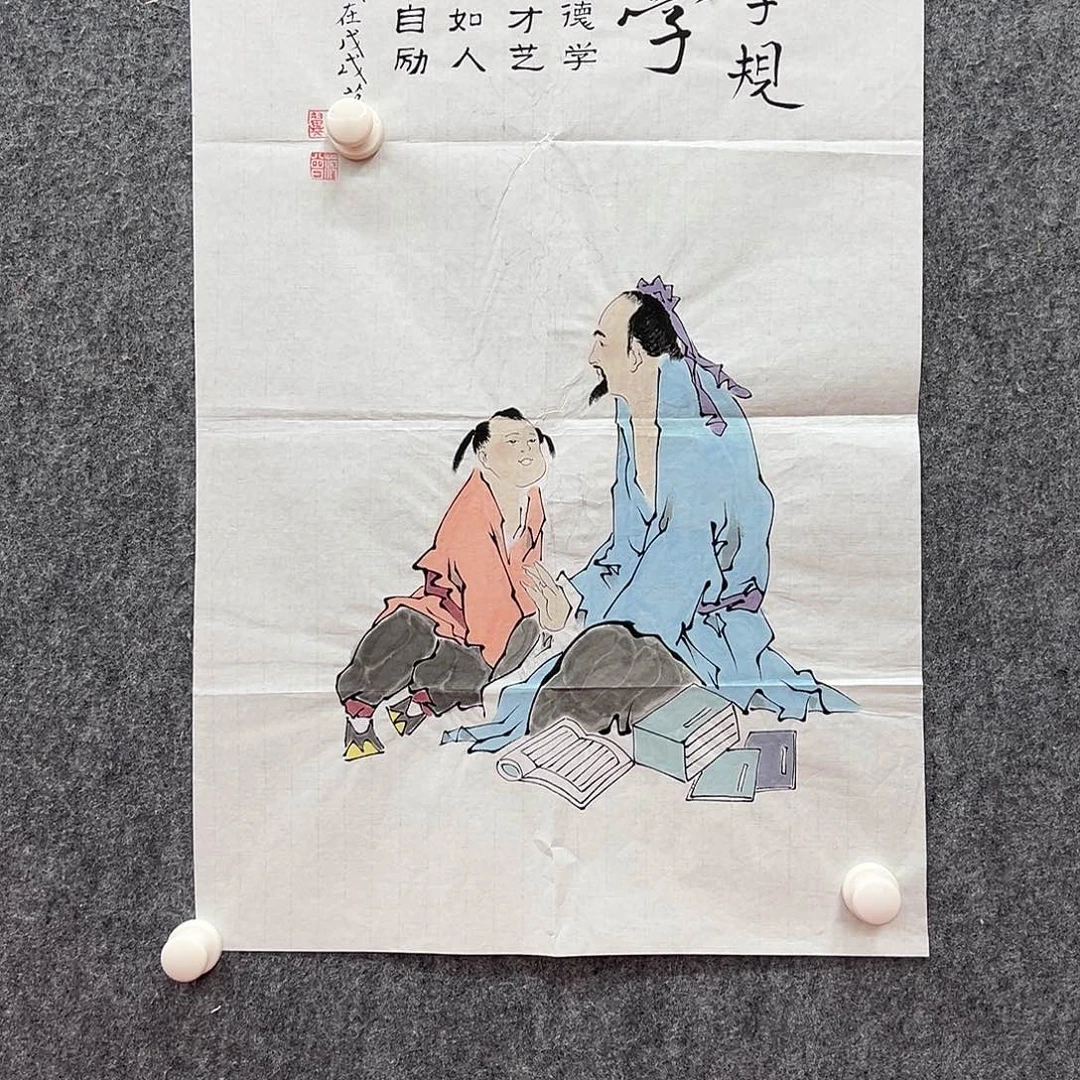 子规
学
德学
才艺
如人
自励
在戊戌